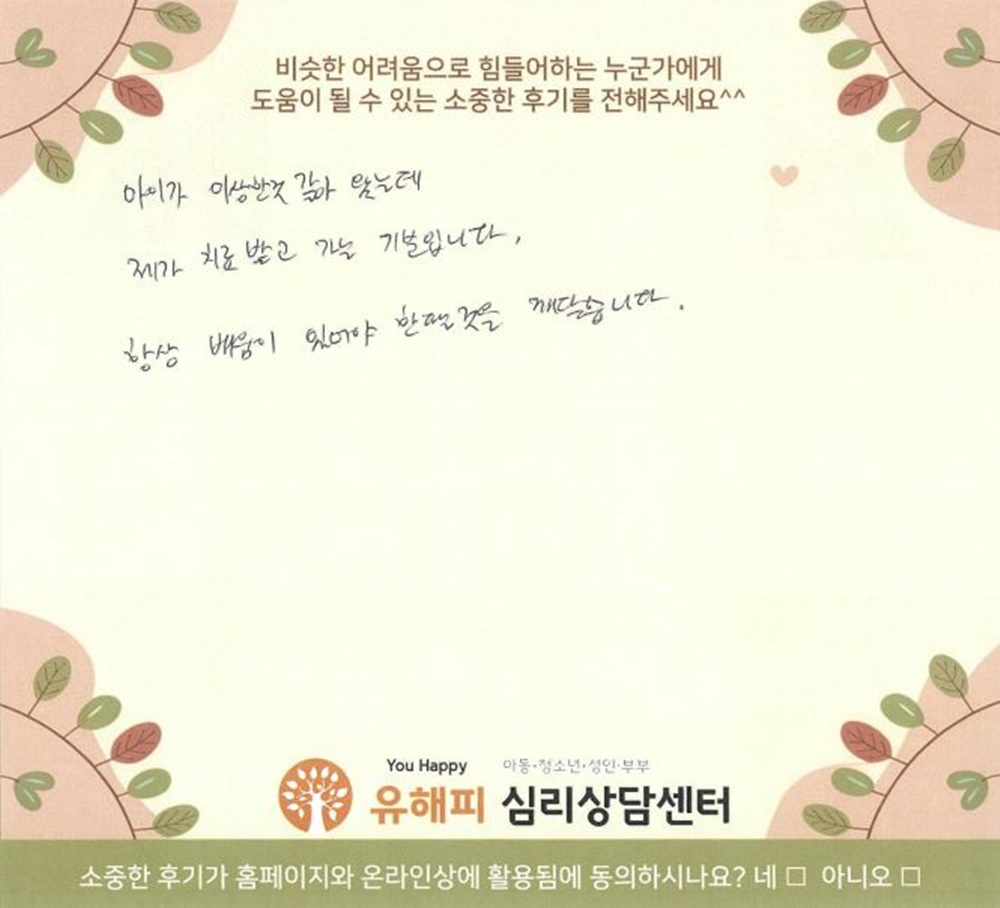 비슷한 어려움으로 힘들어하는 누군가에게
도움이 될 수 있는 소중한 후기를 전해주세요^^
아이가 이상한것 같아 왔는데
제가 치료받고 가는 기분입니다,
항상 배움이 있어야 한다는것을 깨달습니다.
You Happy 아동·청소년·성인·부부
유해피 심리상담센터
소중한 후기가 홈페이지와 온라인상에 활용됨에 동의하시나요? 네 □ 아니오 □